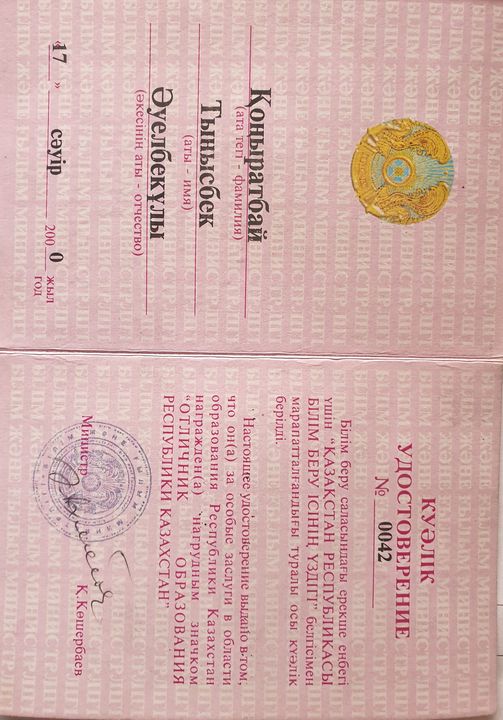 Қоңыратбай
(ата тегі - фамилия)
Тынысбек
(аты - имя)
Әуелбекұлы
(әкесінің аты - отчество)
“17” сәуір 2000 жыл
год
КУӘЛІК
УДОСТОВЕРЕНИЕ
№ 0042
Білім беру саласындағы ерекше еңбегі
үшін “ҚАЗАҚСТАН РЕСПУБЛИКАСЫ
БІЛІМ БЕРУ ІСІНІҢ ҮЗДІГІ” белгісімен
марапатталғандығы туралы осы куәлік
берілді.
Настоящее удостоверение выдано в том,
что он(а) за особые заслуги в области
образования Республики Казахстан
награжден(а) нагрудным значком
“ОТЛИЧНИК ОБРАЗОВАНИЯ
РЕСПУБЛИКИ КАЗАХСТАН”
Министр К.Көшербаев